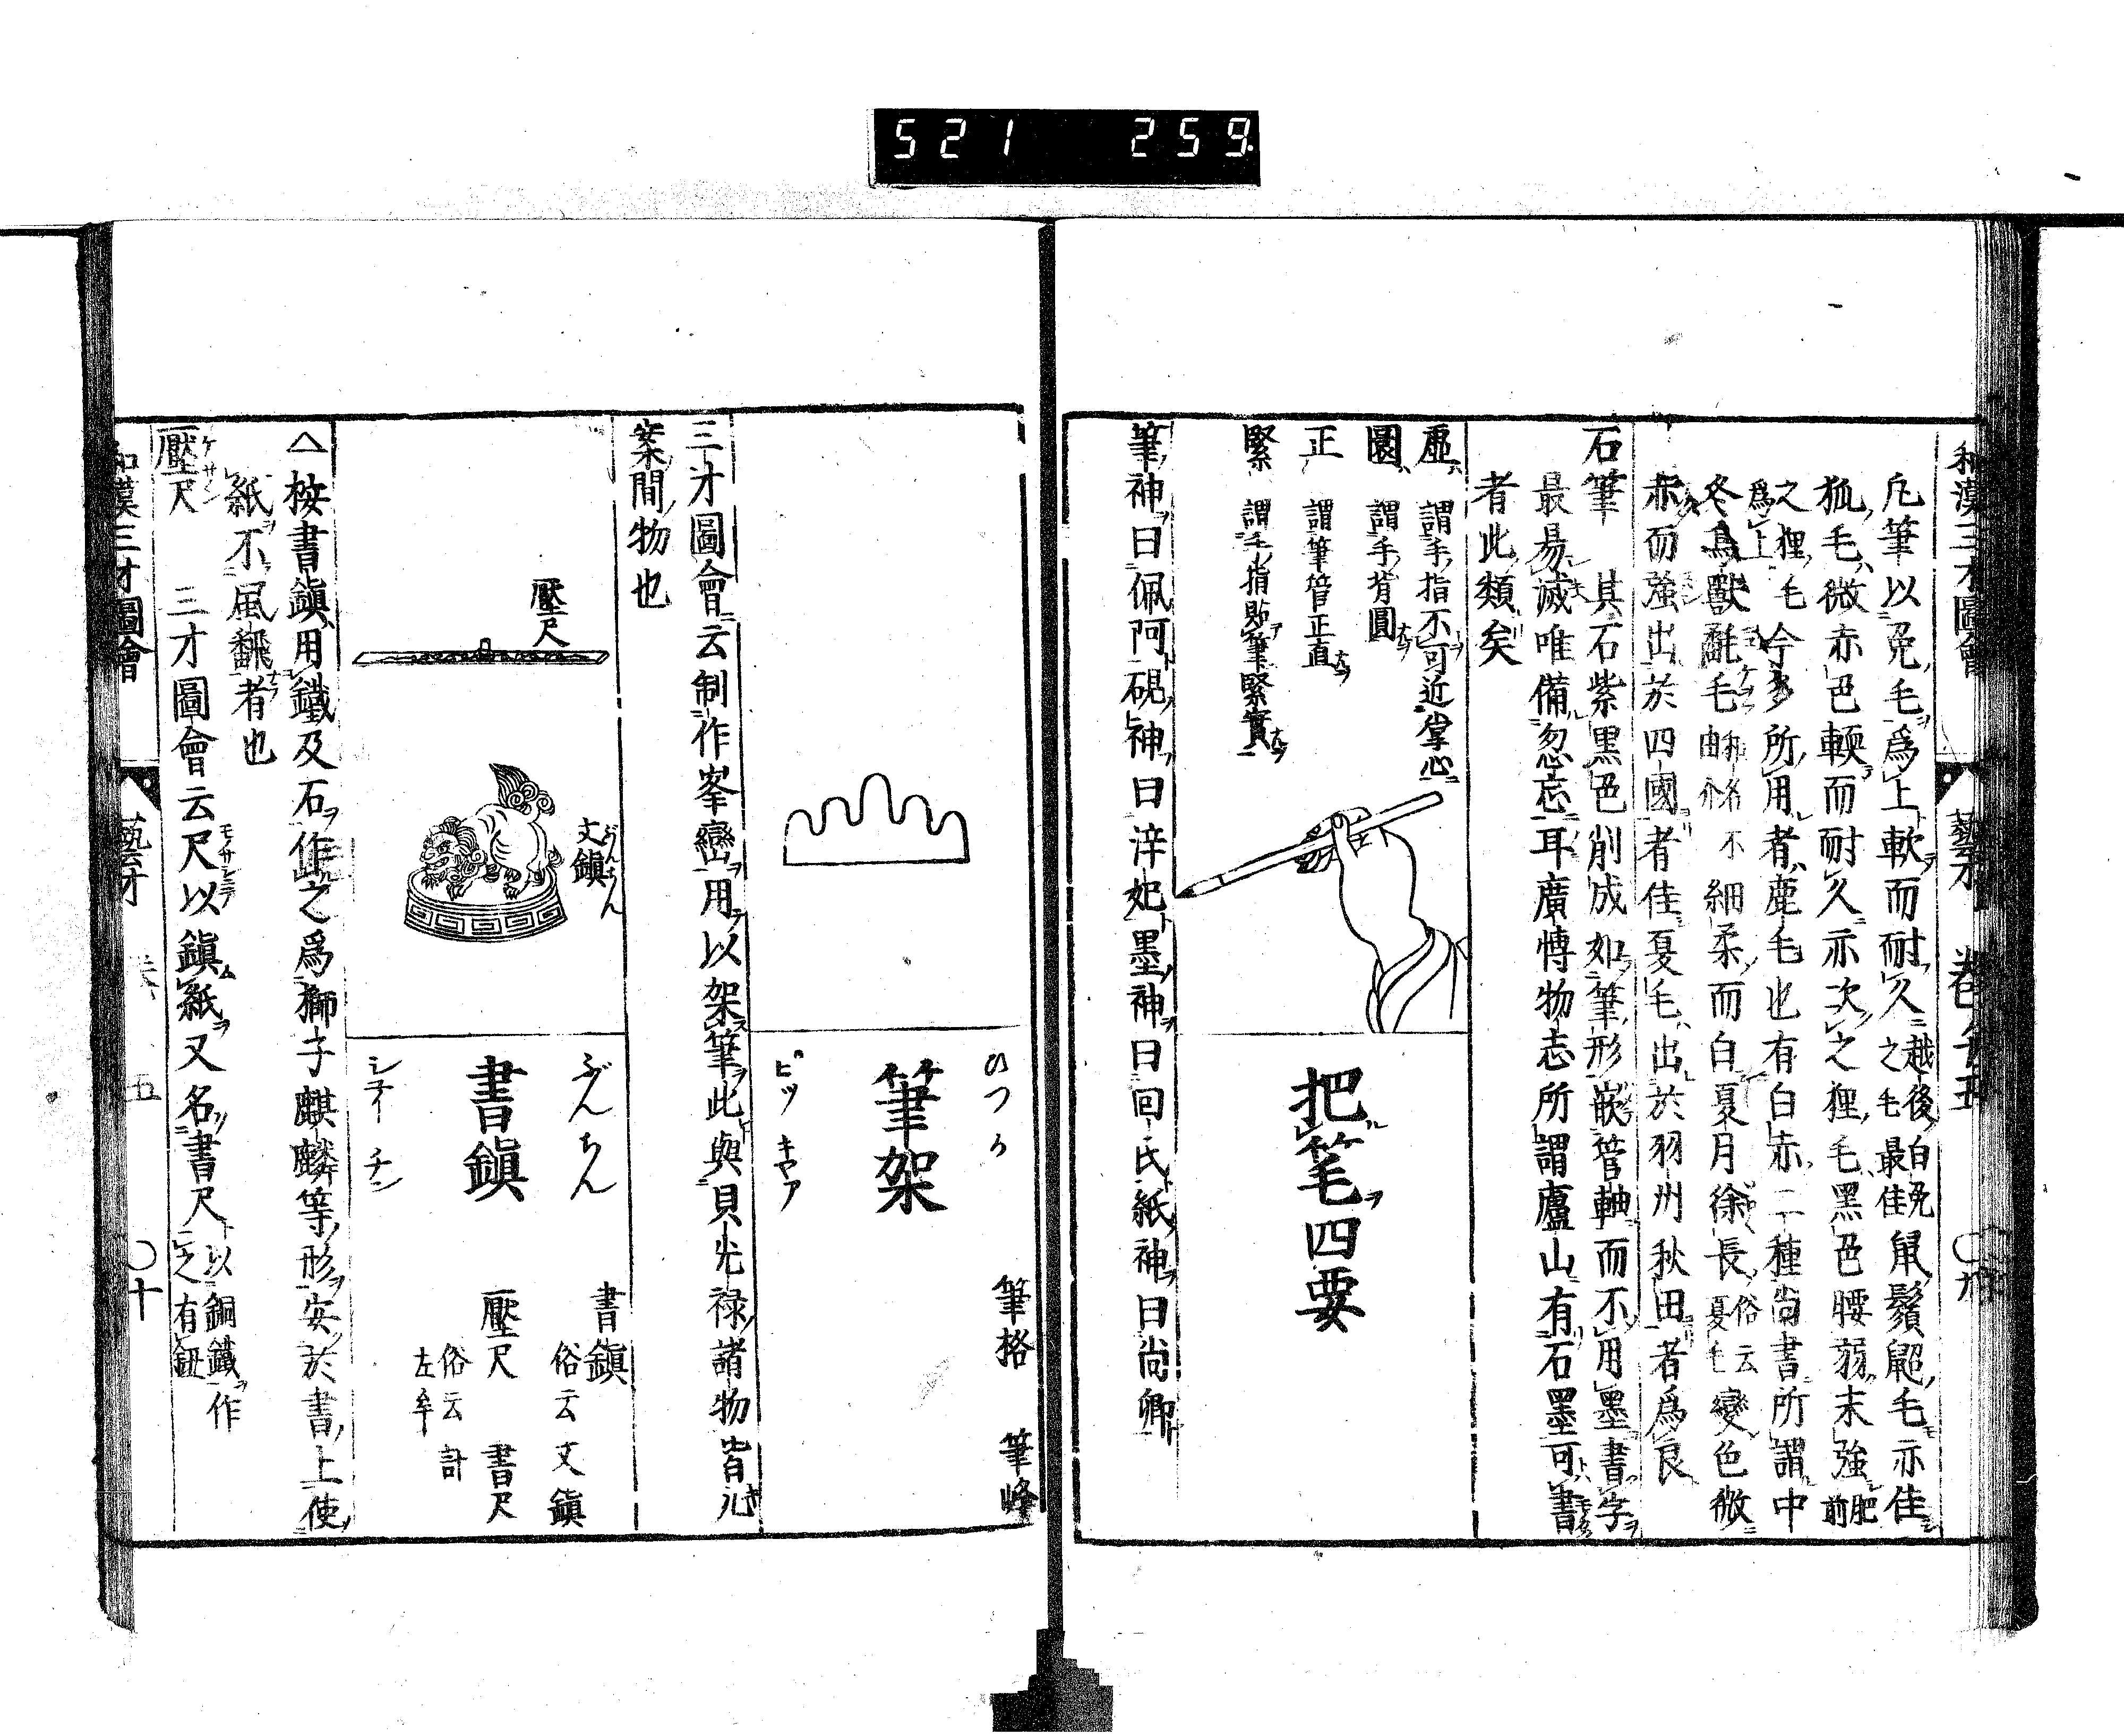 521 259
和漢三才圖會 藝才 卷㐧十五 〇九
凡筆以兔毛爲上軟而耐久越後白兔之毛最佳鼠鬚鼦毛亦佳
狐毛微赤色輭而耐久亦次之狸毛黒色腰弱末強肥前
之狸毛今多所用者鹿毛也有白赤二種尚書所謂中
爲上
冬鳥獸氄毛由介不細柔而白夏月徐長俗云夏毛變色微
赤而強出於四國者佳夏毛出於羽州秋田者爲良
石筆 其石紫黒色削成如筆形嵌管軸而不用墨書字
最易滅唯備忽忘耳廣博物志所謂廬山有石墨可書
者此類矣
把筆四要
虛 謂手指不可近掌心
圜 謂手背圓
正 謂筆管正直
緊 謂手指貼筆緊實
筆神曰佩阿硯神曰淬妃墨神曰回氏紙神曰尚卿
ひつか
筆架
ピツ キヤア
筆格 筆峰
三才圖會云制作峯巒用以架筆此與貝光禄諸物皆几
案間物也
ぶんちん
書鎭
シユイ チン
書鎭 俗云文鎭
壓尺 書尺
俗云計左牟
壓尺
文鎭
ぶんちん
△按書鎭用鐵及石作之爲獅子麒麟等形安於書上使
紙不風飜者也
壓尺 三才圖會云尺以鎭紙又名書尺以銅鐵作之有鈕
ケサン
和漢三才圖會 藝才 卷 五 〇十